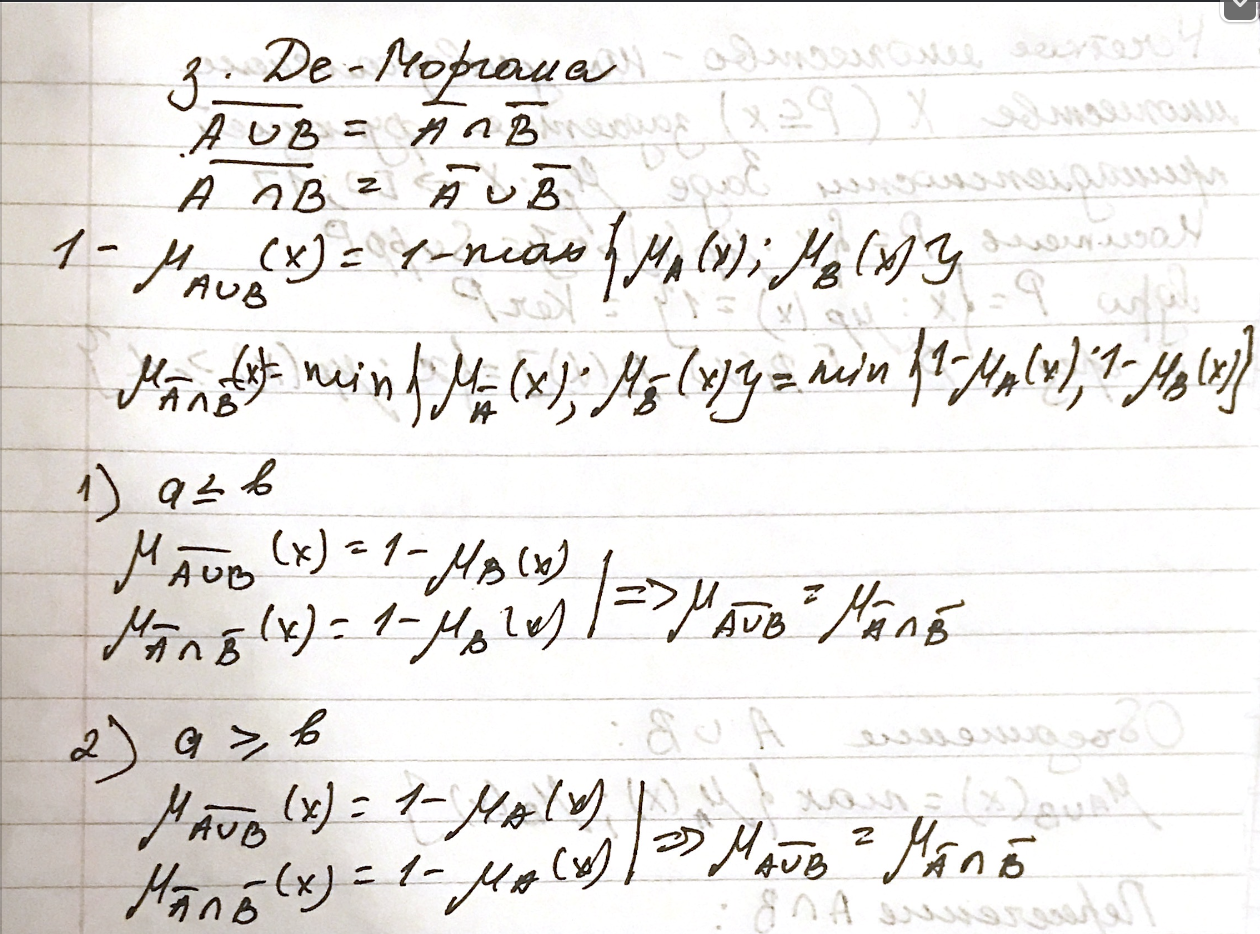 з. Де-Моргана
A ∪ B̅ = A̅ ∩ B̅
A ∩ B̅ = A̅ ∪ B̅
1 - μ_{A∪B}(x) = 1 - max {μ_A(x); μ_B(x)}
μ_{A̅∩B̅}(x) = min {μ_{A̅}(x); μ_{B̅}(x)} = min {1-μ_A(x); 1-μ_B(x)}
1) a ≤ b
μ_{\overline{A∪B}}(x) = 1 - μ_B(x)
μ_{A̅∩B̅}(x) = 1 - μ_B(x) | => μ_{\overline{A∪B}} = μ_{A̅∩B̅}
2) a ≥ b
μ_{\overline{A∪B}}(x) = 1 - μ_A(x)
μ_{A̅∩B̅}(x) = 1 - μ_A(x) | => μ_{\overline{A∪B}} = μ_{A̅∩B̅}